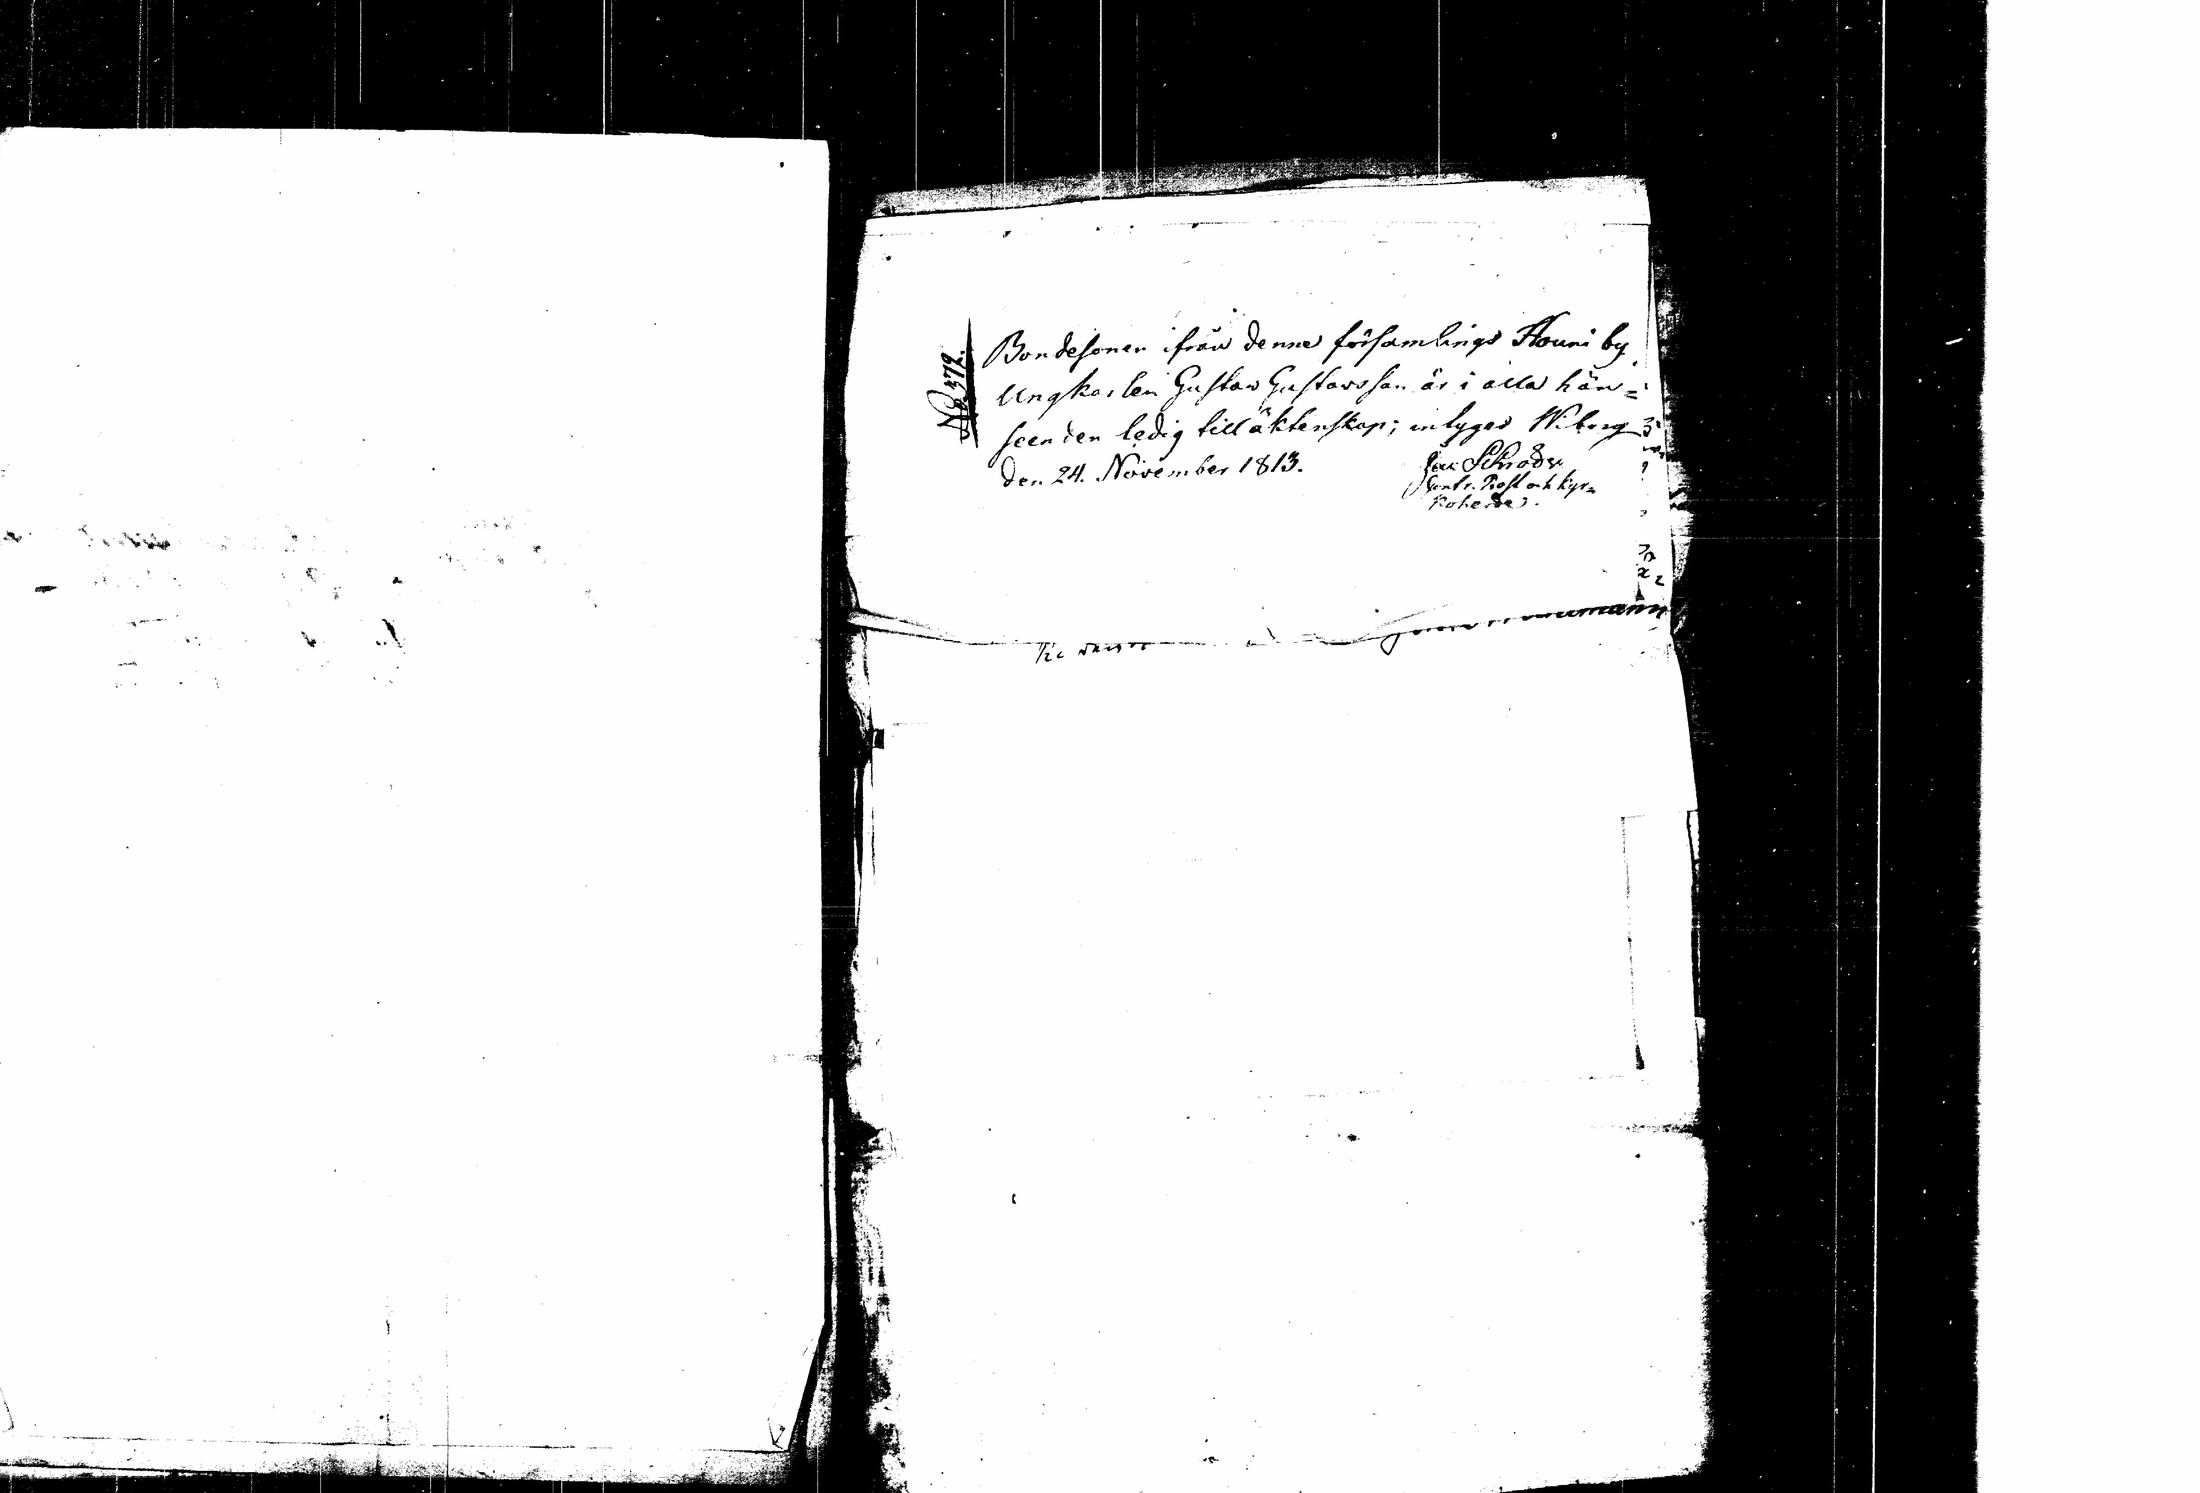 No 372.
Bondesonen ifrån denne församlings Houni by
Ungkarlen Gustaw Gustavsson är i alla hän=
seenden ledig till äktenskap; intygas Wiborg
den 24. November 1813.
Schröder
Contr. Prost och Kyr=
koherde.